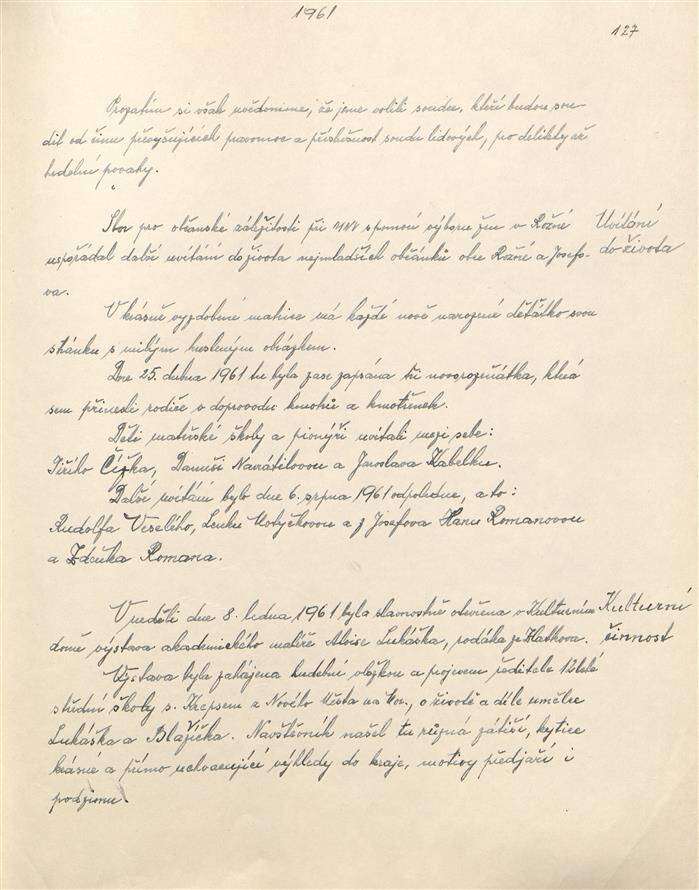 1961
127
Prozatím si však uvědomme, že jsme volili soudce, kteří budou sou-
dit od činu převyšujících pravomoc a příslušnost soudu lidových, po delikty až
hrdelní povahy.
Sbor pro občanské záležitosti při MNV s pomocí výboru žen v Rožné
Uvítání
uspořádal další uvítání do života nejmladších občánků obce Rožné a Josefo-
do života
va.
V krásně vyzdobené matrice má každé nově narozené děťátko svou
stránku s milým kresleným obrázkem.
Dne 25. dubna 1961 tu byla zase zapsána tři novorozeňátka, která
sem přinesli rodiče v doprovodu kmotrů a kmotřenek.
Děti mateřské školy a pionýři uvítali mezi sebe:
Jiřího Čížka, Danuši Navrátilovou a Jaroslava Kabelku.
Další uvítání bylo dne 6. srpna 1961 odpoledne, a to:
Rudolfa Veselého, Lenku Motyčkovou a z Josefova Hanu Romanovou
a Zdeňka Romana.
V neděli dne 8. ledna 1961 byla slavnostně otevřena v Kulturním
Kulturní
domě výstava akademického malíře Aloise Lukáška, rodáka ze Zlatkova.
činnost
Výstava byla zahájena hudební vložkou a projevem ředitele 12leté
střední školy s. Krepsem z Nového Města na Mor., o životě a díle umělce
Lukáška a Blažíčka. Navštěvník našel tu různá zátiší, kytice
krásné a přímo uchvacující výhledy do kraje, motivy předjaří i
podzimu.